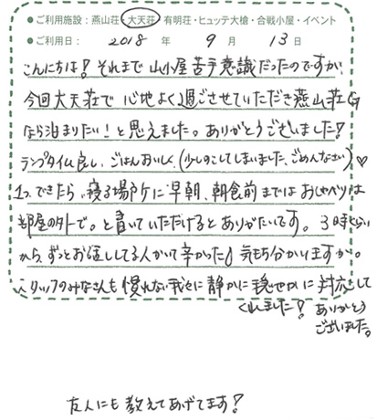 ●ご利用施設：燕山荘・大天荘・有明荘・ヒュッテ大槍・合戦小屋・イベント
●ご利用日： 2018 年 9 月 13 日
こんにちは！それまで山小屋苦手意識だったのですが、
今回大天荘で心地よく過ごさせていただき燕山荘G
なら泊まりたい！と思えました。ありがとうございました！
ランプタイム良し、ごはんおいしく、(少しのこしてしまいました、ごめんなさい)♡
1つ、できたら、寝る場所に早朝、朝食前まではおしゃべりは
部屋の外で。と書いていただけるとありがたいです。3時くらい
から、ずっとお話ししてる人がいて辛かった 気持ち分かりますが。
スタッフのみなさんも慣れない我々に静かに穏やかに対応して
くれました！ ありがとう
ございました。
友人にも教えてあげてます！